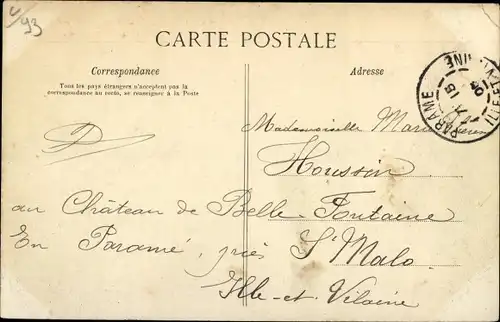 U/93
CARTE POSTALE
Correspondance
Adresse
Tous les pays étrangers n'acceptent pas la
correspondance au recto, se renseigner à la Poste
PARAMÉ
Mademoiselle Marie
Houssin
au Château de Belle-Fontaine
En Paramé, près St Malo
Ille-et-Vilaine